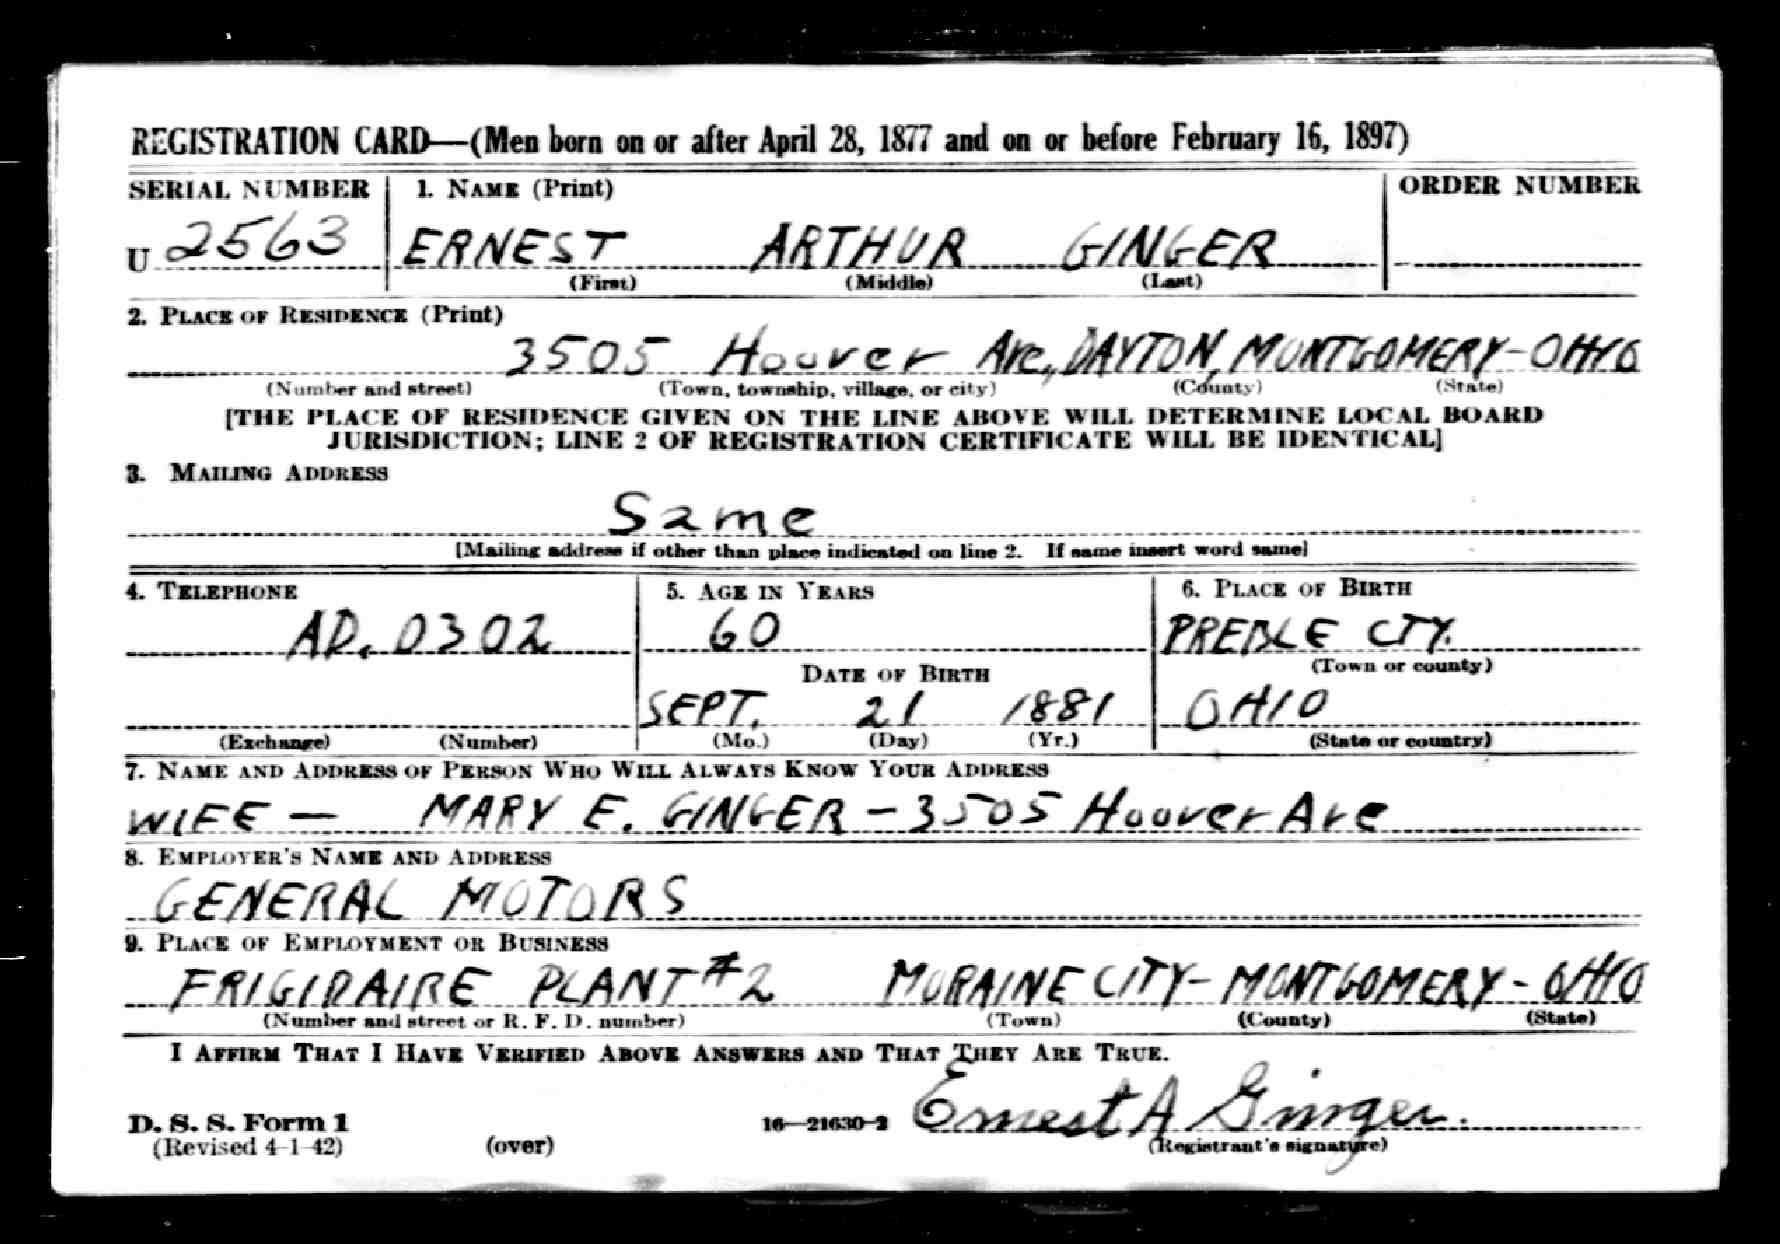 REGISTRATION CARD—(Men born on or after April 28, 1877 and on or before February 16, 1897)
SERIAL NUMBER 1. NAME (Print) ORDER NUMBER
U 2563 ERNEST ARTHUR GINGER
(First) (Middle) (Last)
2. PLACE OF RESIDENCE (Print)
3505 Hoover Ave., DAYTON, MONTGOMERY-OHIO
(Number and street) (Town, township, village, or city) (County) (State)
[THE PLACE OF RESIDENCE GIVEN ON THE LINE ABOVE WILL DETERMINE LOCAL BOARD
JURISDICTION; LINE 2 OF REGISTRATION CERTIFICATE WILL BE IDENTICAL]
3. MAILING ADDRESS
Same
[Mailing address if other than place indicated on line 2. If same insert word same]
4. TELEPHONE 5. AGE IN YEARS 6. PLACE OF BIRTH
AD. 0302 60 PREBLE CTY.
DATE OF BIRTH (Town or county)
SEPT. 21 1881 OHIO
(Exchange) (Number) (Mo.) (Day) (Yr.) (State or country)
7. NAME AND ADDRESS OF PERSON WHO WILL ALWAYS KNOW YOUR ADDRESS
WIFE — MARY E. GINGER - 3505 Hoover Ave
8. EMPLOYER'S NAME AND ADDRESS
GENERAL MOTORS
9. PLACE OF EMPLOYMENT OR BUSINESS
FRIGIDAIRE PLANT #2 MORAINE CITY- MONTGOMERY - OHIO
(Number and street or R. F. D. number) (Town) (County) (State)
I AFFIRM THAT I HAVE VERIFIED ABOVE ANSWERS AND THAT THEY ARE TRUE.
D. S. S. Form 1 16—21630-2 Ernest A Ginger.
(Revised 4-1-42) (over) (Registrant's signature)